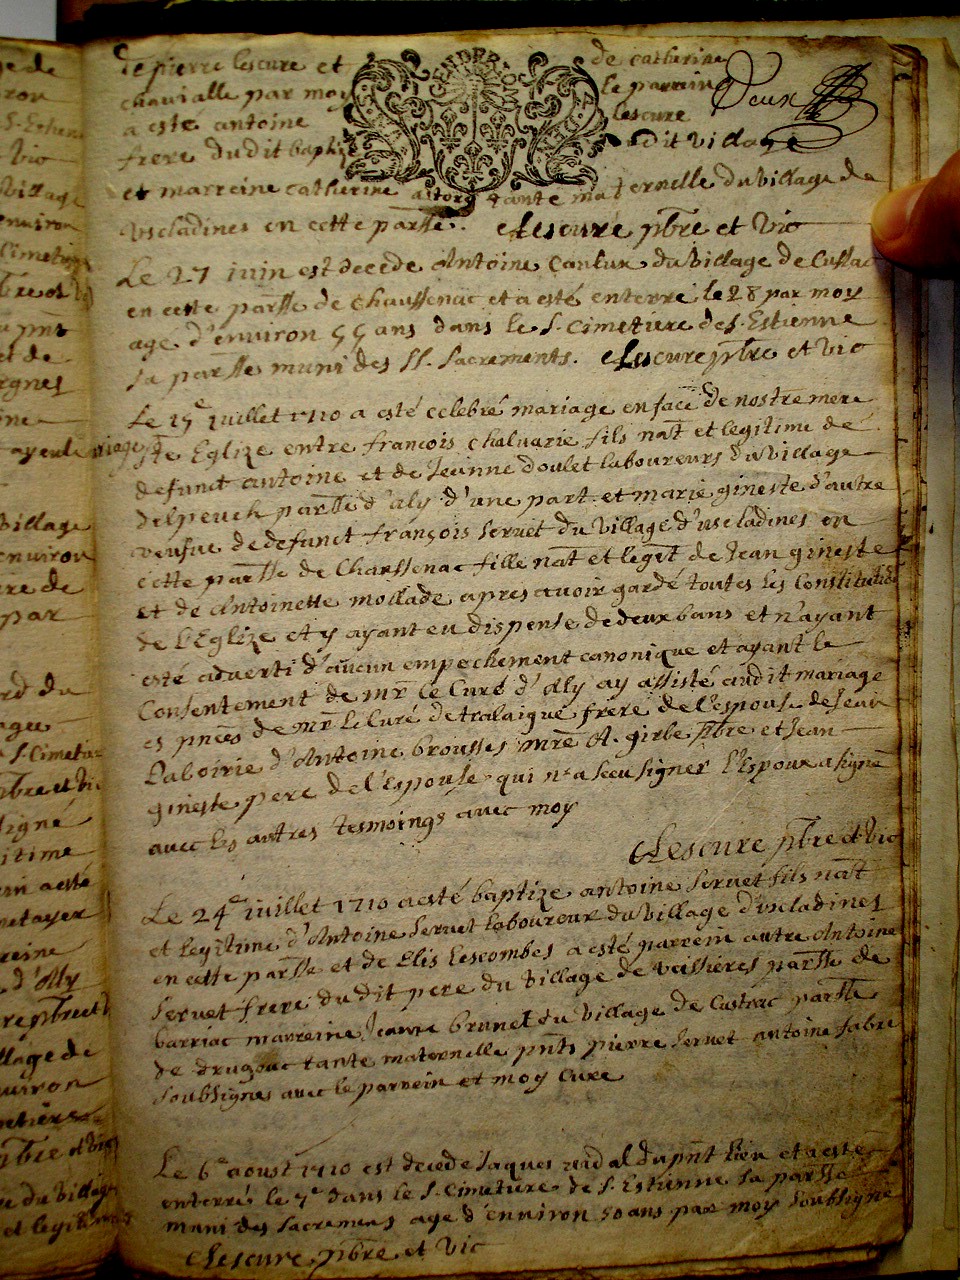 de pierre lescure et de catherine
chavialle par moy le parrein
a esté antoine lescure
frere dudit baptize dit village
et marreine catherine astorg tante maternelle du village de
uscladines en cette parsse. Lescure pbre et vic
Deux
GENDERION
Le 27 juin est decede Antoine Cantux du Village de Cussac
en cette parsse de Chaussenac et a esté enterré le 28 par moy
age d'environ 55 ans dans le S. Cimetiere de S. Estienne
sa parsse muni des SS. Sacrements. Lescure pbre et vic
Le 15e juillet 1710 a esté celebré mariage en face de nostre mere
Ste Eglize entre francois chalvarie fils nat et legitime de
defunct antoine et de Jeanne doulet laboureurs du Village
delpeuch parsse d'aly d'une part et marie gineste d'autre
veufue de defunct françois servet du Village d'uscladines en
cette parsse de Chaussenac fille nat et legit de Jean gineste
et de Antoinette mollade apres avoir gardé toutes les Constitutions
de l'Eglize et y ayant eu dispense de deux bans et n'ayant
esté adverti d'aucun empechement canonique et ayant le
Consentement de mr le Curé d'Aly ay assisté audit mariage
es pnces de mr le Curé de tralaigue frere de l'espouse de Jean
Laboirie d'Antoine brousses mre A. girbe pbre et Jean
gineste pere de l'Espouse qui n'a sceu signer l'Espoux a signé
avec les autres tesmoings avec moy
Lescure pbre et vic
Le 24e juillet 1710 a esté baptize antoine servet fils nat
et legitime d'Antoine servet laboureur du Village d'uscladines
en cette parsse et de Elis Lescombes a esté parrein autre Antoine
servet frere du dit pere du Village de veissieres parsse de
barriac marreine Jeanne brunet du Village de Custrac parsse
de drugeac tante maternelle pnts pierre servet antoine fabre
soubsignes avec le parrein et moy Cure
Le 6e aoust 1710 est decede Jaques vidal du pnt lieu et a esté
enterré le 7e dans le S. Cimetiere de S. Estienne sa parsse
muni des sacremens age d'environ 50 ans par moy soubsigné
Lescure pbre et vic